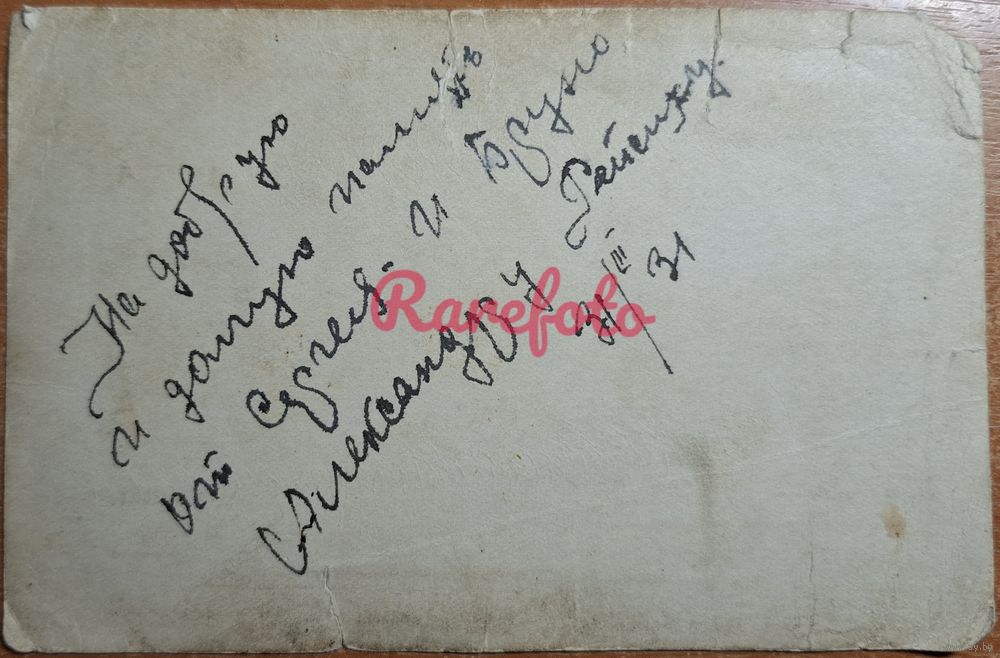 На добрую
и долгую память
от Сергея и Бруно
Александру
31/III 31
Rarefoto